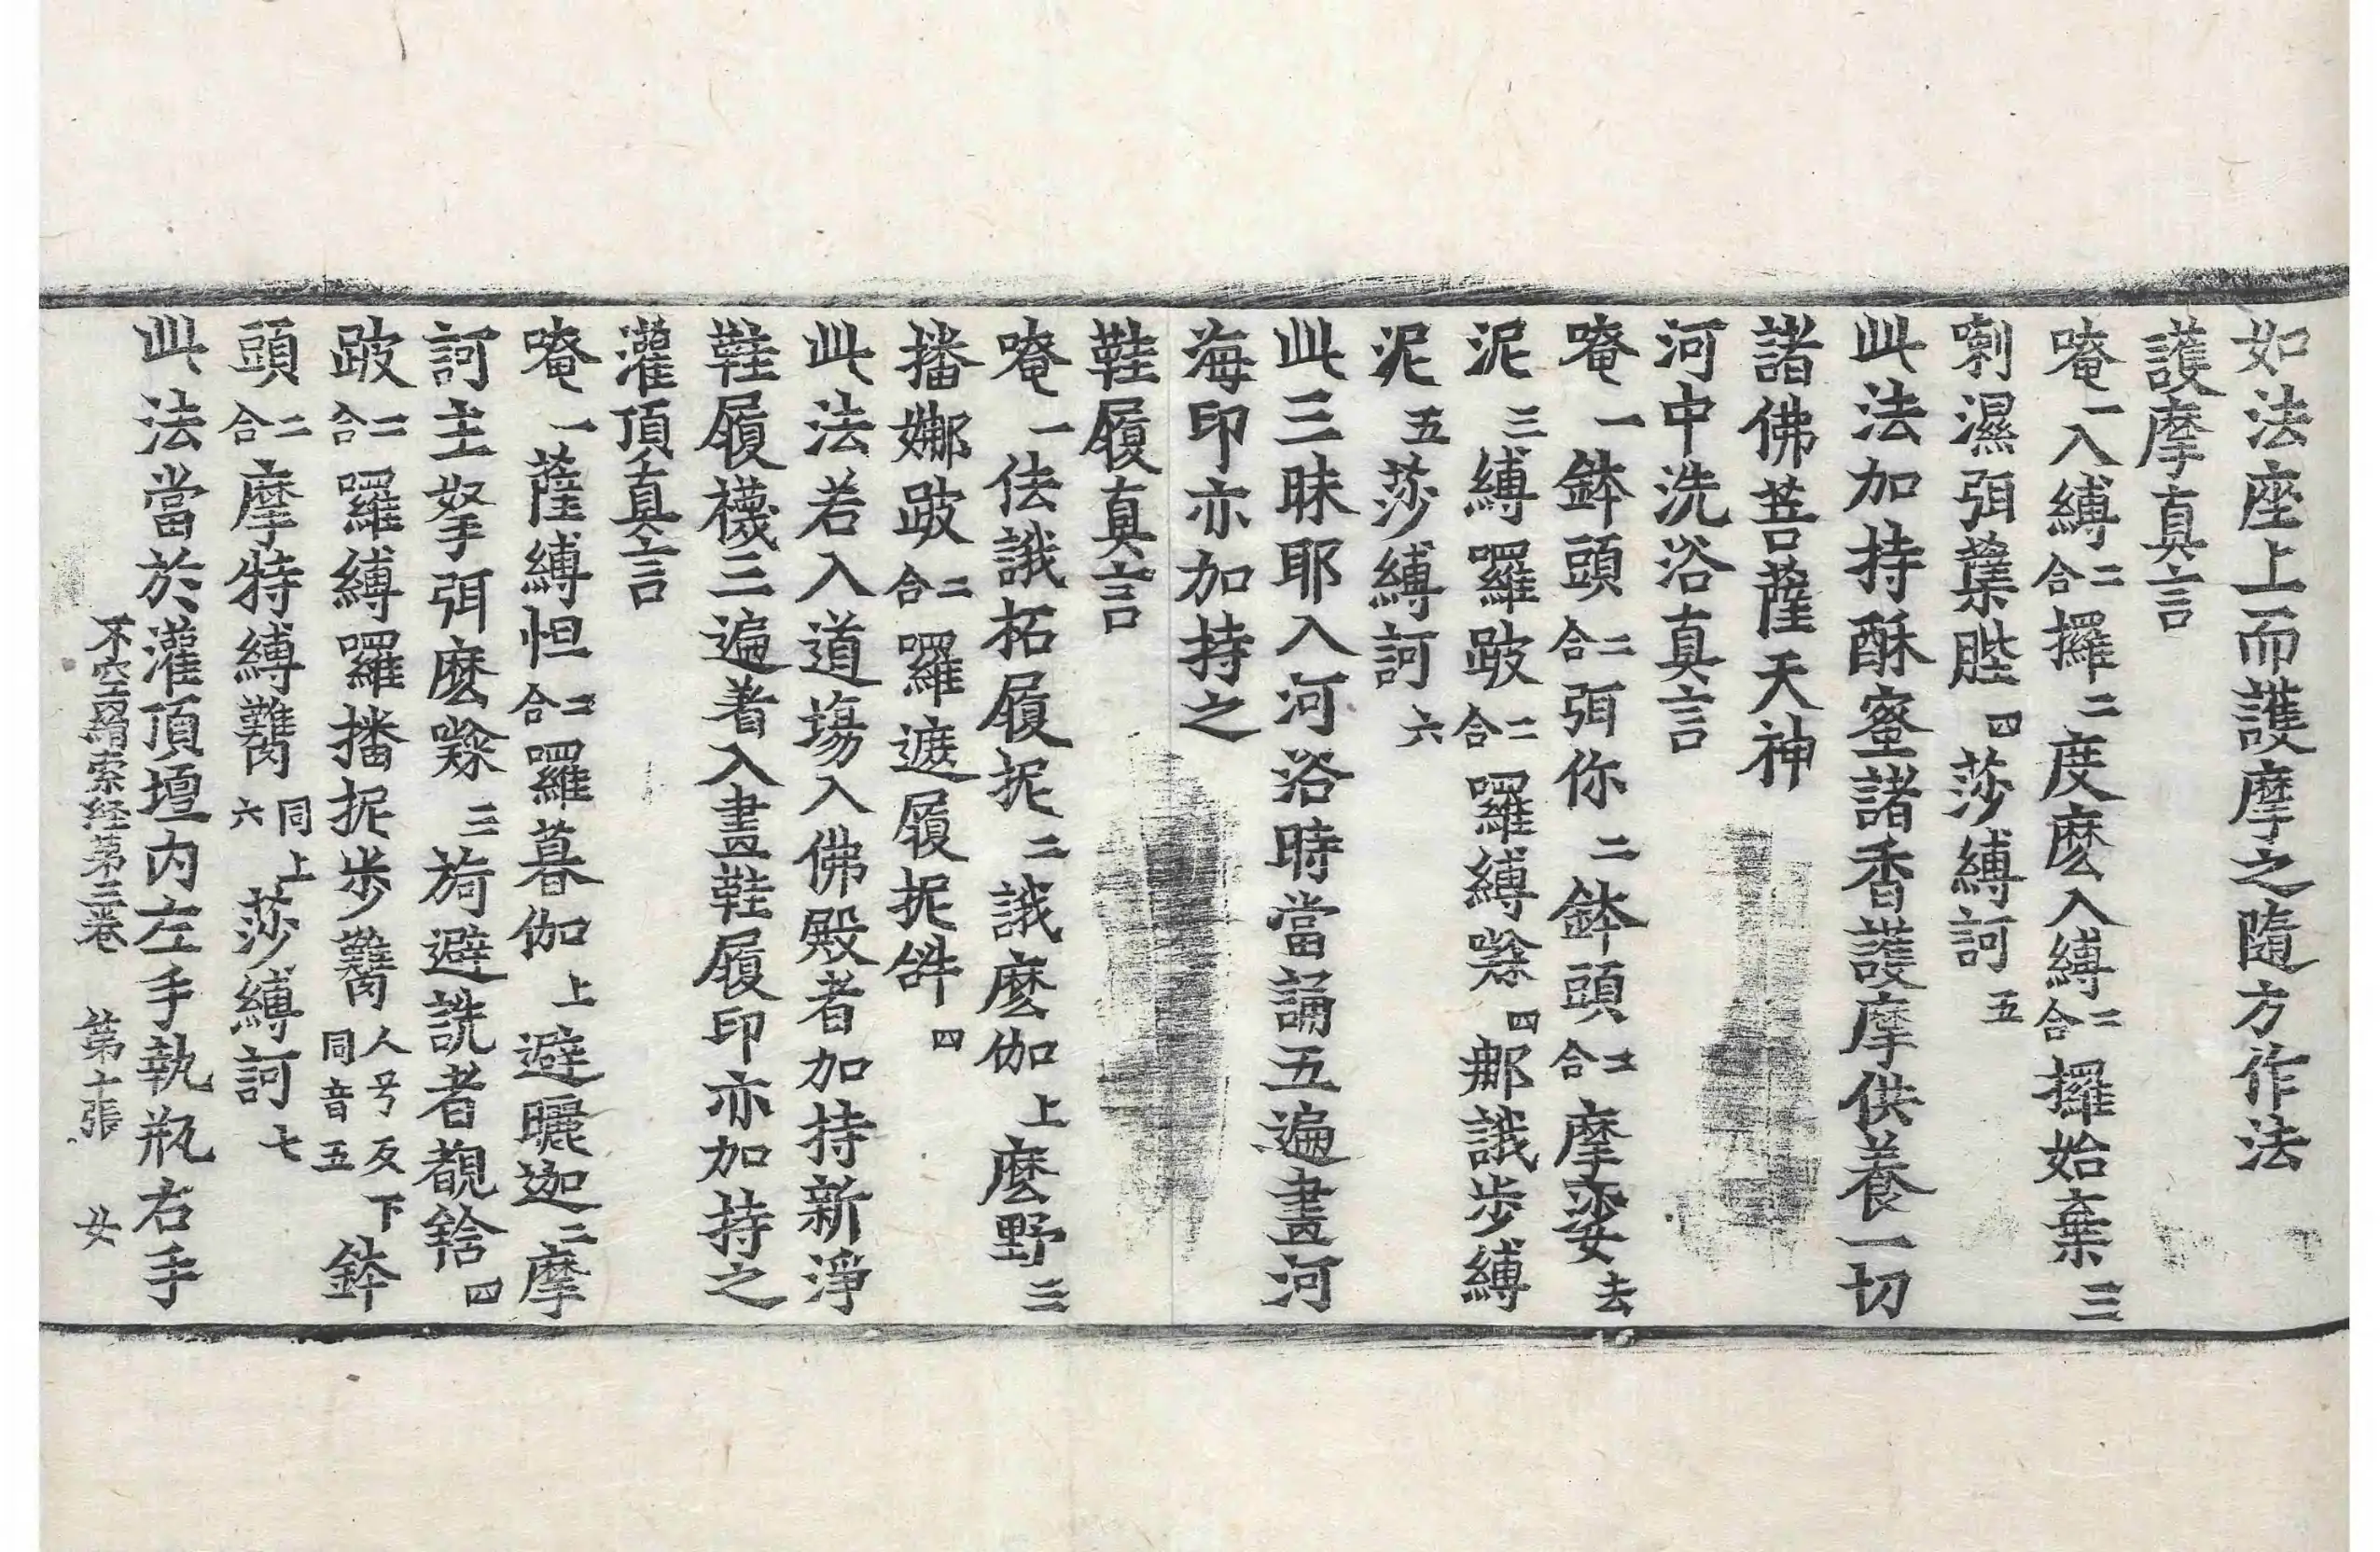 如法座上而護摩之隨方作法
護摩真言
唵一入縛二合攞二度麽入縛二合攞始棄三
喇濕弭蘖陛四莎縛訶五
此法加持酥蜜諸香護摩供養一切
諸佛菩薩天神
河中洗浴真言
唵一鉢頭二合弭你二鉢頭二合摩娑去
泥三縛囉跛二合囉縛㗚四那誐步縛
泥五莎縛訶六
此三昧耶入河浴時當誦五遍畫河
海印亦加持之
鞋履真言
唵一佉誐柘履抳二誐麽伽上麽野三
播娜跛二合囉遮履抳𤙖四
此法若入道場入佛殿者加持新淨
鞋履襪三遍著入畫鞋履印亦加持之
灌頂真言
唵一薩縛怛二合囉暮伽上避曬迦二摩
訶主拏弭麽㗚三旖避詵者覩𤚥四
跛二合囉縛囉播抳步䕼人兮反下同音五鉢
頭二合摩特縛䕼同上六莎縛訶七
此法當於灌頂壇内左手執瓶右手
不空羂索経第三卷 第十張 女